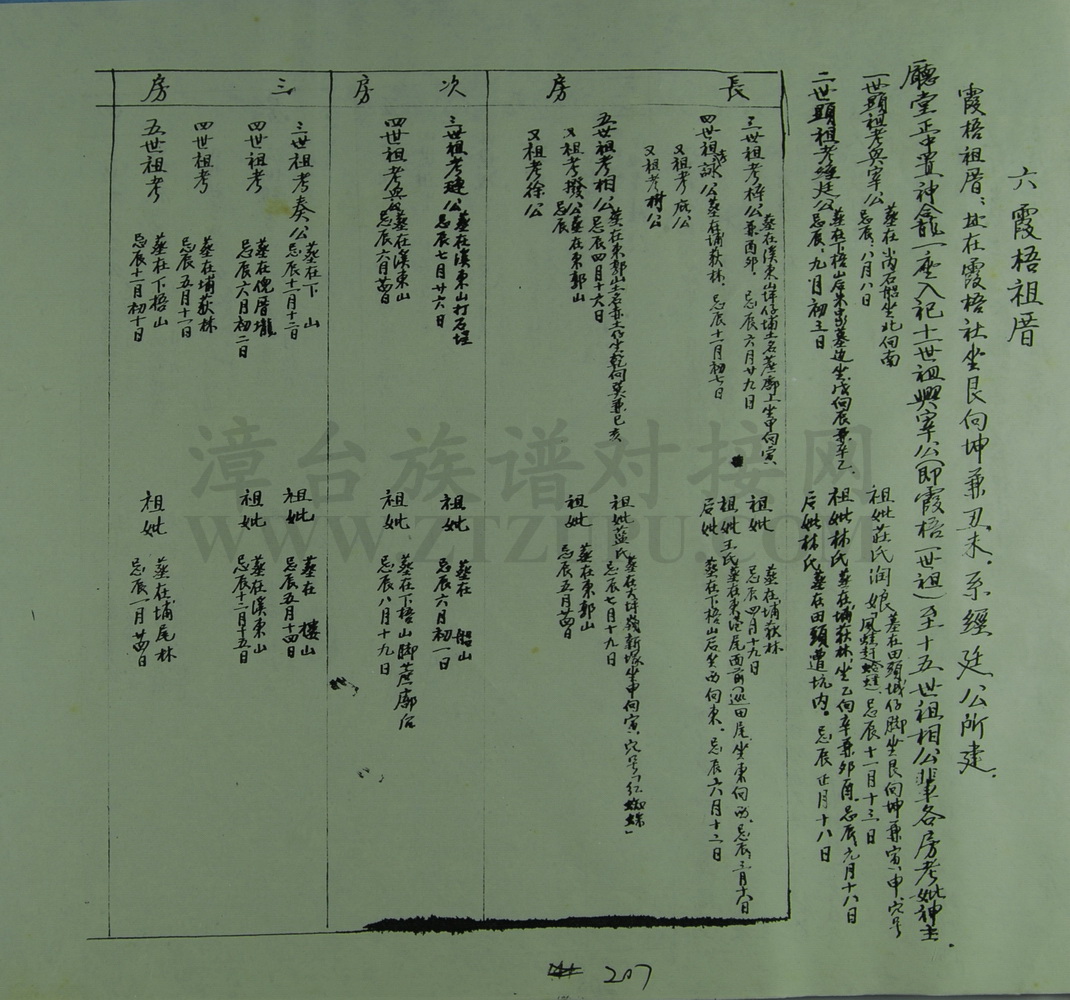 六霞梧祖厝
霞梧祖厝：址在霞梧社坐艮向坤兼丑未．系經廷公所建．
廳堂正中置神龕一座入祀十一世祖興宰公（即霞梧一世祖）至十五世祖相公輩各房考妣神主．
一世顯祖考興宰公 忌辰：八月八日 坐北向南
祖妣莊氏润娘 墓在田頭城仔脚坐艮向坤兼寅、申、穴号
忌辰十一月十三日
二世顯祖考經廷公 忌辰：九月初三日
祖妣林氏 墓在埔荻林坐乙向辛兼卯酉．忌辰：九月十八日
后妣林氏 墓在田頭 坑内。忌辰 月十八日
長
房
三世祖考梓公兼酉卯． 忌辰六月廿九日
墓在溪東山 坐申向寅
祖妣 墓在埔荻林
忌辰四月十九日
四世祖考詠公墓在埔荻林．忌辰十一月初七日
祖妣王氏 坐東向西．忌辰三月十六日
后妣 墓在下梧山后坐西向東．忌辰六月十二日
又祖考底公
又祖考樹公
五世祖考相公 忌辰四月十六日
祖妣蓝氏 墓在大坪嶺新塚坐申向寅、穴号「红蜘蛛」
忌辰七月十九日
又祖考撥公墓在東郭山
忌辰
祖妣 墓在東郭山
忌辰五月廿四日
又祖考徐公
次
房
三世祖考璉公 墓在溪東山打石埕
忌辰七月廿六日
祖妣 墓在 船山
忌辰六月初一日
四世祖考 墓在溪東山
忌辰六月廿四日
祖妣 墓在下梧山脚蔗廓后
忌辰八月十九日
三
房
三世祖考奏公 墓在下 山
忌辰十一月十二日
祖妣 墓在 樓山
忌辰五月十四日
四世祖考 墓在俔厝壠
忌辰六月初二日
祖妣 墓在溪東山
忌辰十二月十五日
四世祖考 墓在埔荻林
忌辰五月十一日
五世祖考 墓在下梧山
忌辰十一月初十日
祖妣 墓在埔尾林
忌辰一月廿四日
207
漳台族谱对接网
WWW.ZTZUPU.COM